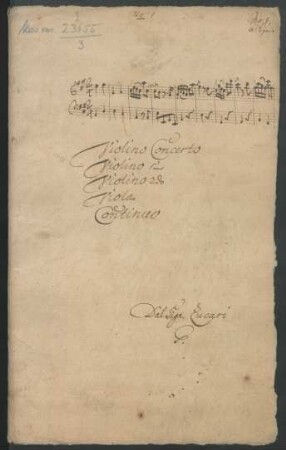 Mus. ms. 23655
3
Violino Concerto
Violino 1mo
Violino 2do
Viola
Continuo
Dal Sigr. Zucari